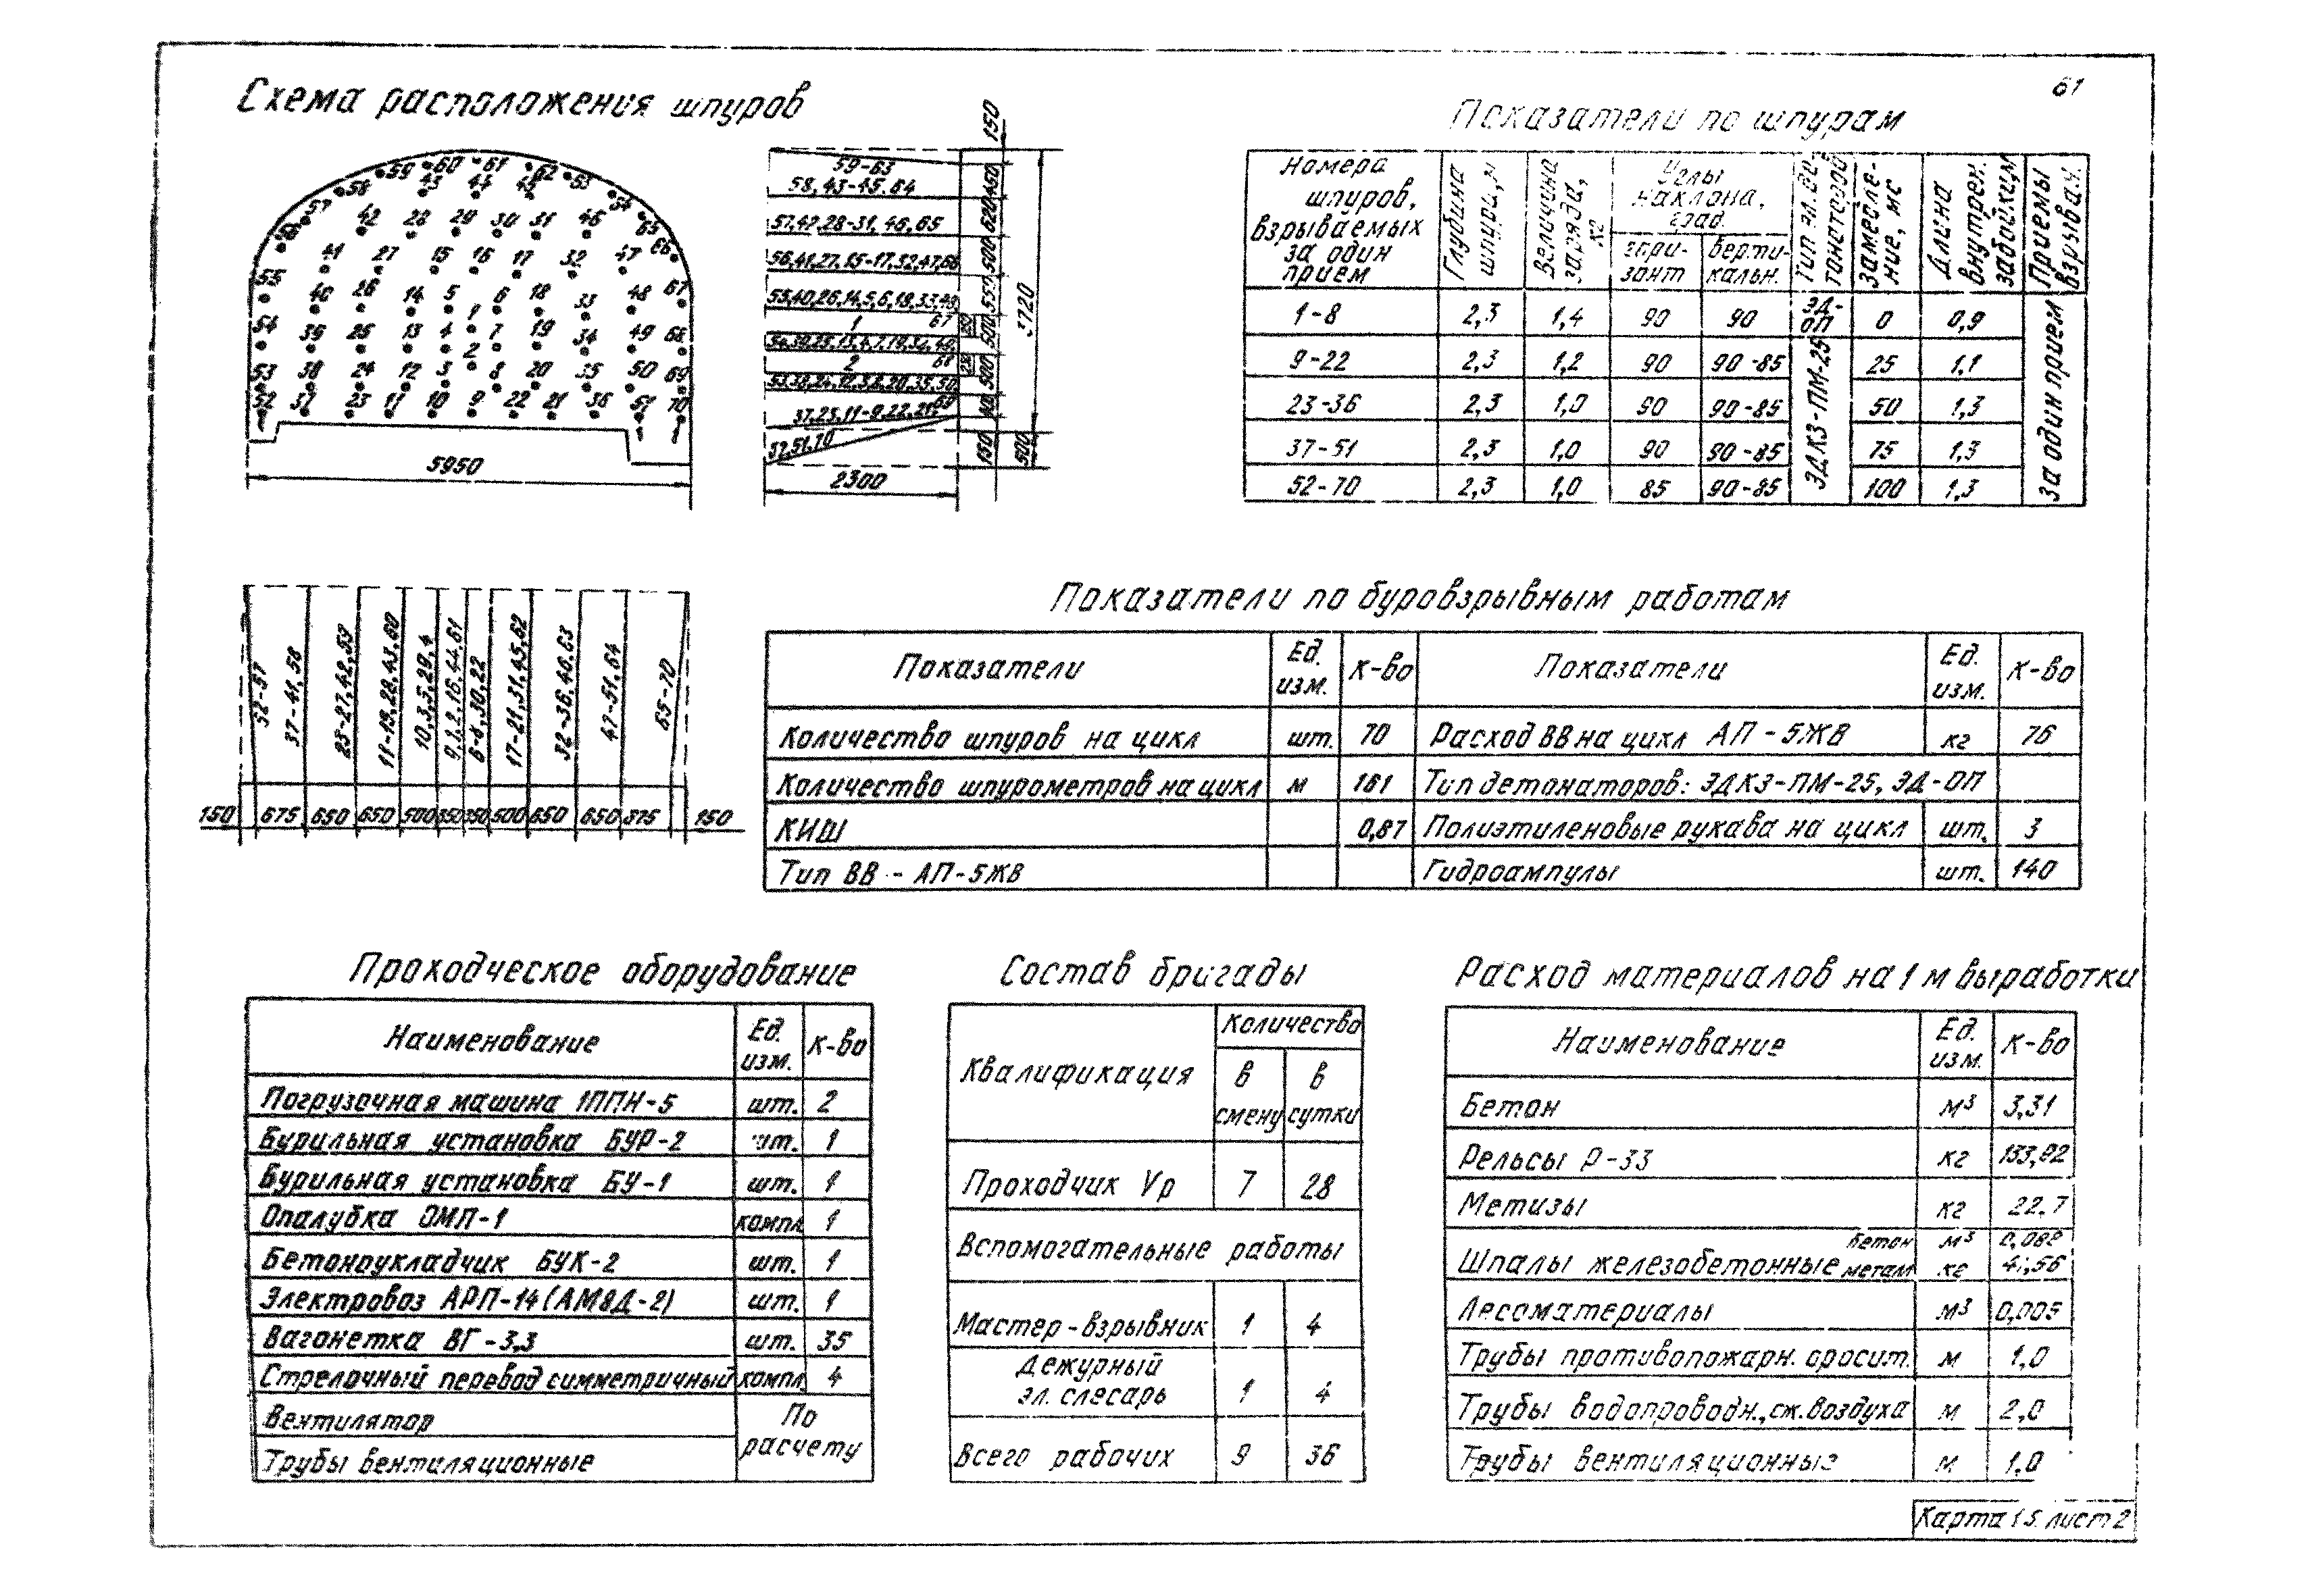 61
Схема расположения шпуров
59 60 61 62 63
58 43 44 45 64
57 42 28 29 30 31 46 65
56 41 27 15 16 17 32 47 66
55 40 26 14 5 6 18 33 48 67
54 39 25 13 4 1 7 19 34 49 68
53 38 24 12 3 2 8 20 35 50 69
52 37 23 11 10 9 22 21 36 51 70
5950
59-63
58, 43-45, 64
57,42,28-31, 46,65
56,41,27,15-17,32,47,66
55,40,26,14,5,6,18,33,48
1 67
2 68
37,23,11-9,22,21,
52,51,70
2300
150
450
620
500
550
500
500
150
500
3720
Показатели по шпурам
Номера шпуров, взрываемых за один прием
Глубина шпура, м
Величина заряда, кг
Углы наклона, град.
гори-зонт
верти-кальн.
Тип эл. де-тонаторов
Замедле-ние, мс
Длина внутрен. забойки,м
Приемы взрыван.
1-8 2,3 1,4 90 90 ЭД-ОП 0 0,9
9-22 2,3 1,2 90 90-85 25 1,1
23-36 2,3 1,0 90 90-85 50 1,3
37-51 2,3 1,0 90 90-85 75 1,3
52-70 2,3 1,0 85 90-85 100 1,3
ЭДКЗ-ПМ-25
За один прием
52-57
37-41, 58
23-27,42,59
11-15,28,43,60
9,1,2,16,44,61
17-21,31,45,62
32-36,46,63
47-51,64
65-70
150 675 650 650 500 350 350 500 650 650 375 150
Показатели по буровзрывным работам
Показатели Ед. изм. К-во Показатели Ед. изм. К-во
Количество шпуров на цикл шт. 70 Расход ВВ на цикл АП-5ЖВ кг 76
Количество шпурометров на цикл м 161 Тип детонаторов: ЭДКЗ-ПМ-25, ЭД-ОП
КИШ 0,87 Полиэтиленовые рукава на цикл шт. 3
Тип ВВ - АП-5ЖВ Гидроампулы шт. 140
Проходческое оборудование
Наименование Ед. изм. К-во
Погрузочная машина 1ППН-5 шт. 2
Бурильная установка БУР-2 шт. 1
Бурильная установка БУ-1 шт. 1
Опалубка ОМП-1 компл. 1
Бетоноукладчик БУК-2 шт. 1
Электровоз АРП-14(АМ8Д-2) шт. 1
Вагонетка ВГ-3,3 шт. 35
Стрелочный перевод симметричный компл. 4
Вентилятор
Трубы вентиляционные
По расчету
Состав бригады
Квалификация Количество
в смену
в сутки
Проходчик Vр 7 28
Вспомогательные работы
Мастер-взрывник 1 4
Дежурный эл. слесарь 1 4
Всего рабочих 9 36
Расход материалов на 1 м выработки
Наименование Ед. изм. К-во
Бетон м³ 3,31
Рельсы Р-33 кг
Метизы кг 22,7
Шпалы железобетонные бетон м³
металл кг
Лесоматериалы м³ 0,005
Трубы противопожарн. оросит. м 1,0
Трубы водопроводн.,сж.воздуха м 2,0
Трубы вентиляционные м 1,0
Карта 15 лист 2